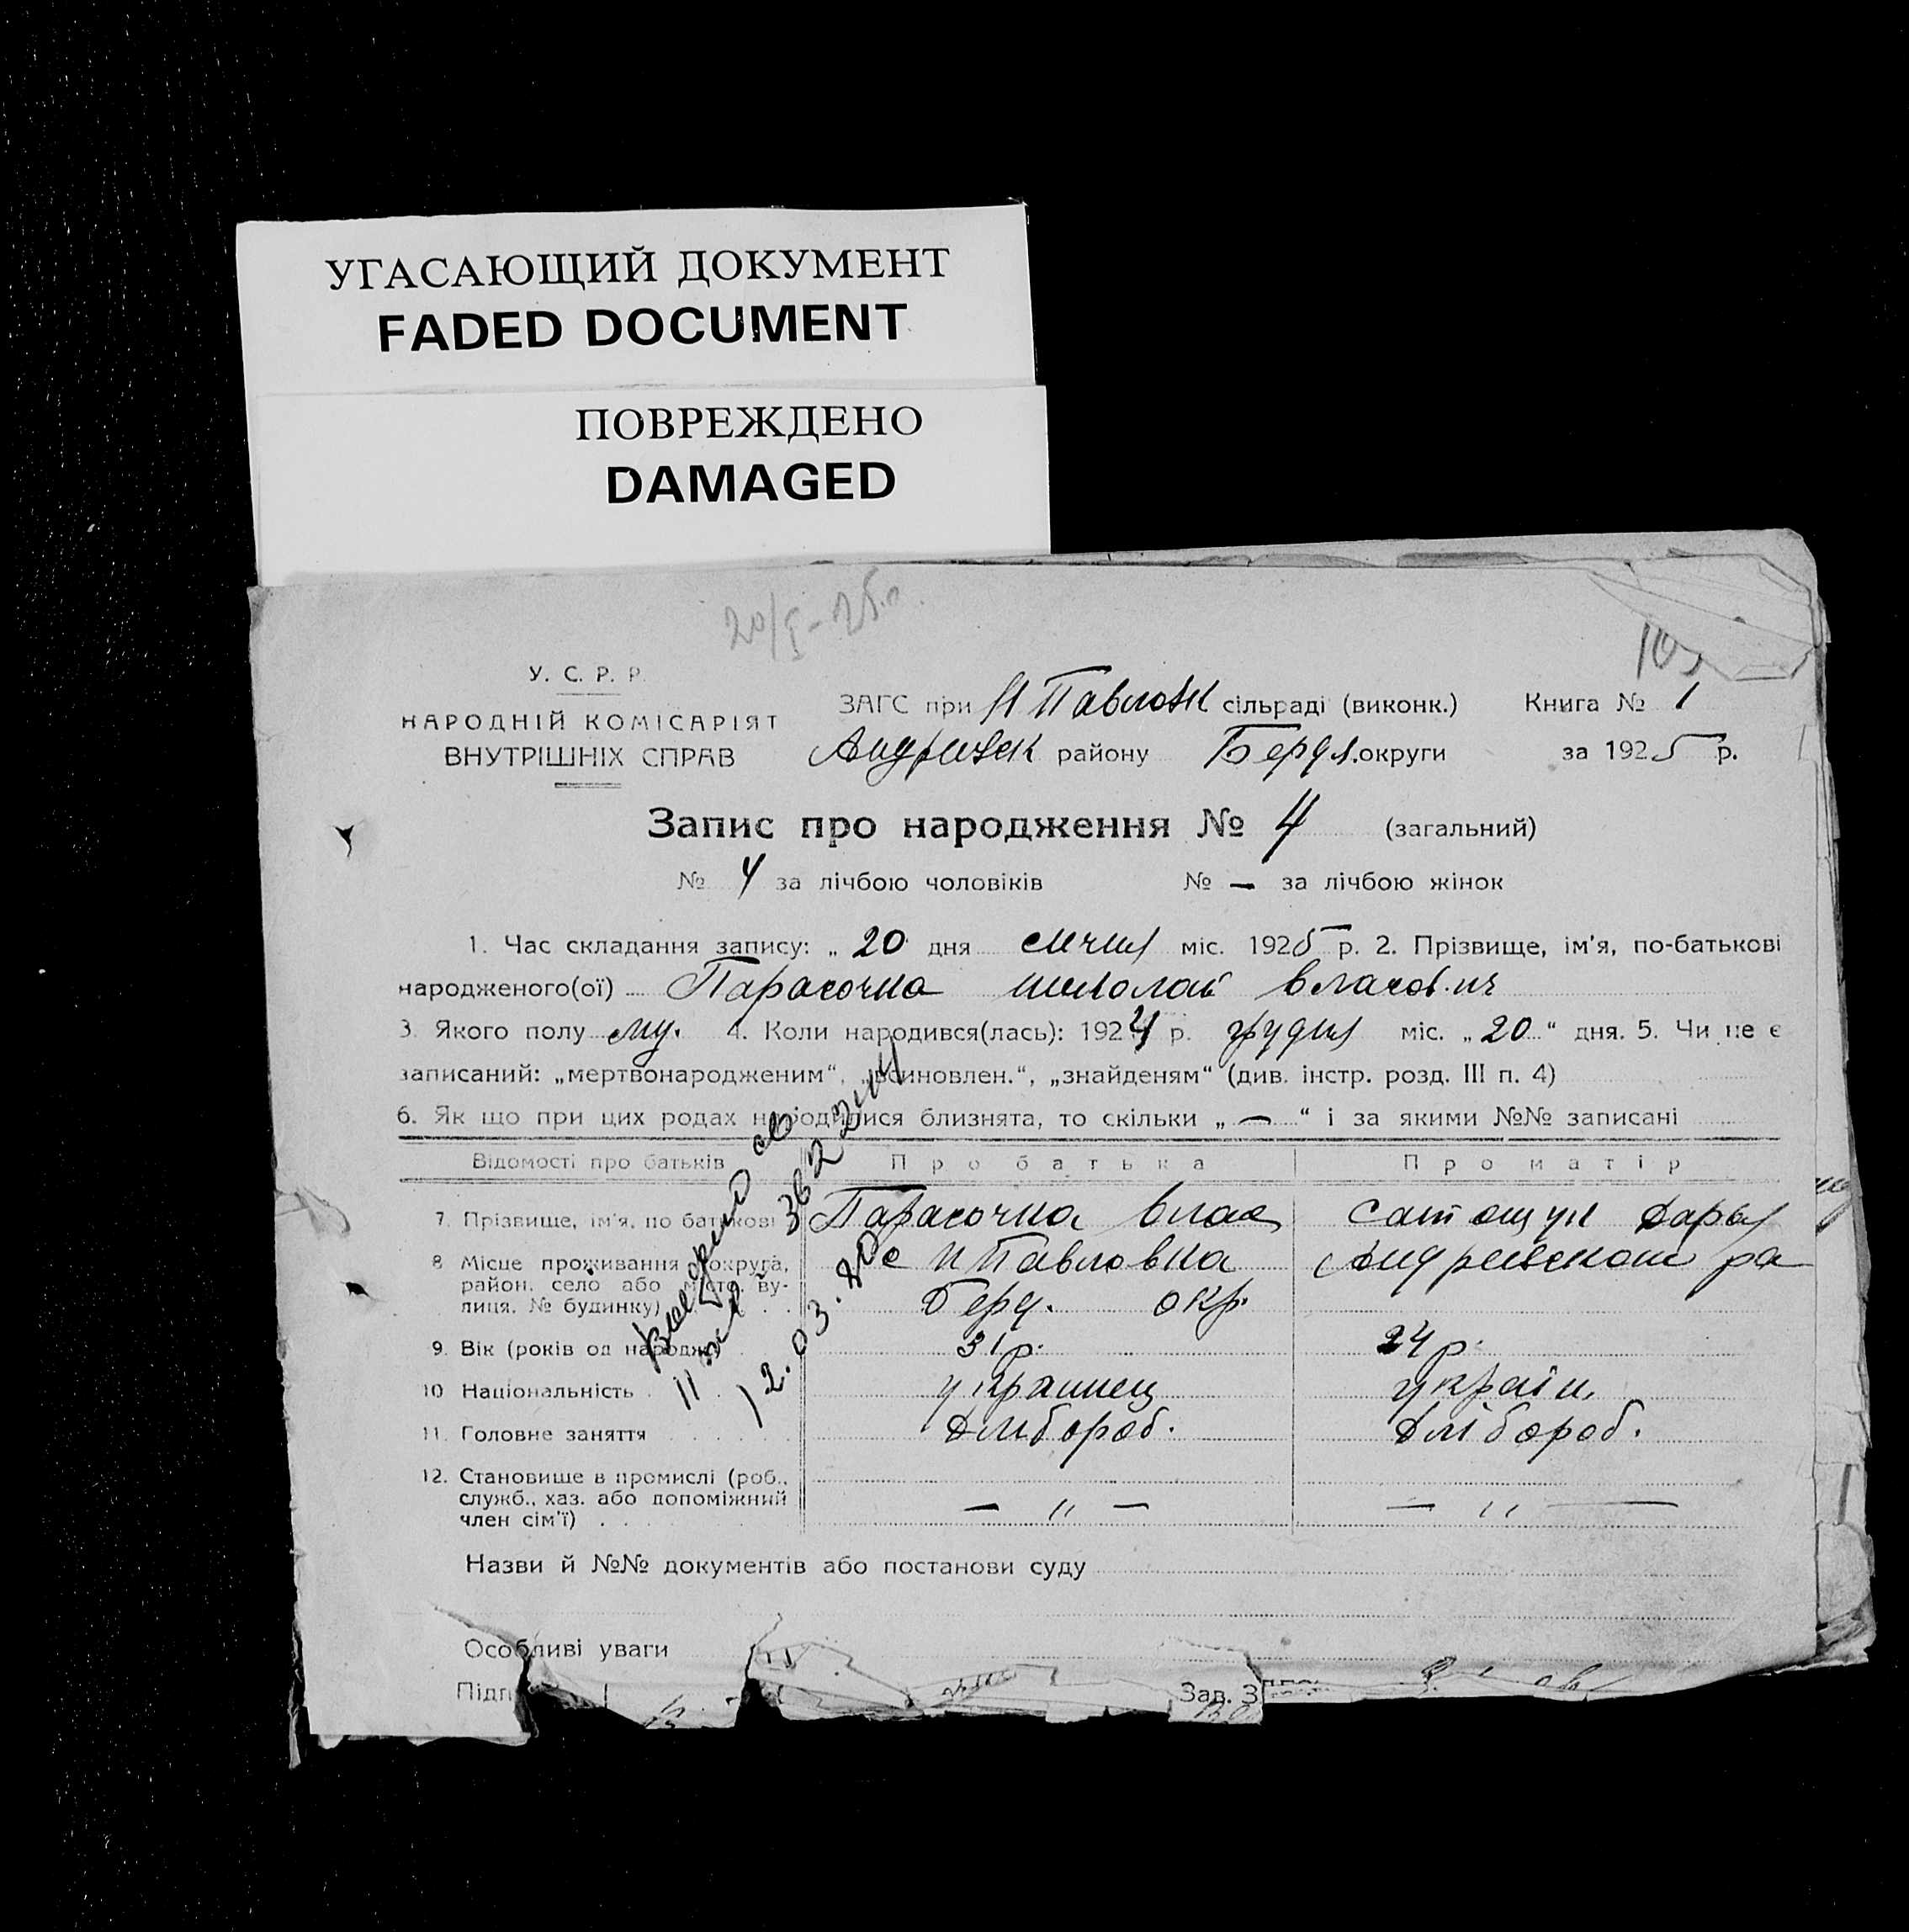 УГАСАЮЩИЙ ДОКУМЕНТ
FADED DOCUMENT
ПОВРЕЖДЕНО
DAMAGED
20/I-25 р.
У. С. Р. Р.
НАРОДНІЙ КОМІСАРІЯТ
ВНУТРІШНІХ СПРАВ
ЗАГС при Н Павловк сільраді (виконк.) Книга № 1
Андриевск району Бердя. округи за 1925 р.
Запис про народження № 4 (загальний)
№ 4 за лічбою чоловіків № — за лічбою жінок
1. Час складання запису: „ 20 дня січня міс. 1925 р. 2. Прізвище, ім'я, по-батькові
народженого(ої) Парасочка Николай Власов.ич
3. Якого полу му. 4. Коли народився(лась): 1924 р. грудня міс. „ 20 “ дня. 5. Чи не є
записаний: „мертвонародженим“, „всиновлен.“, „знайденям“ (див. інстр. розд. III п. 4)
6. Як що при цих родах народилися близнята, то скільки „ — “ і за якими №№ записані
Відомості про батьків Про батька Про матір
7. Прізвище, ім'я, по батькові Парасочка Влас Дарья
8. Місце проживання (округа, с Н Павловка Андриевского ра
район, село або місто, ву-
лиця, № будинку) Берд. окр.
9. Вік (років од народж.) 31 р. 24 р.
10. Національність украинец україн.
11. Головне заняття хлібороб. хлібороб.
12. Становище в промислі (роб.,
служб., хаз. або допоміжний — " — — " —
член сім'ї)
Назви й №№ документів або постанови суду
Особливі уваги
Підп
Зав. З
12.03.80